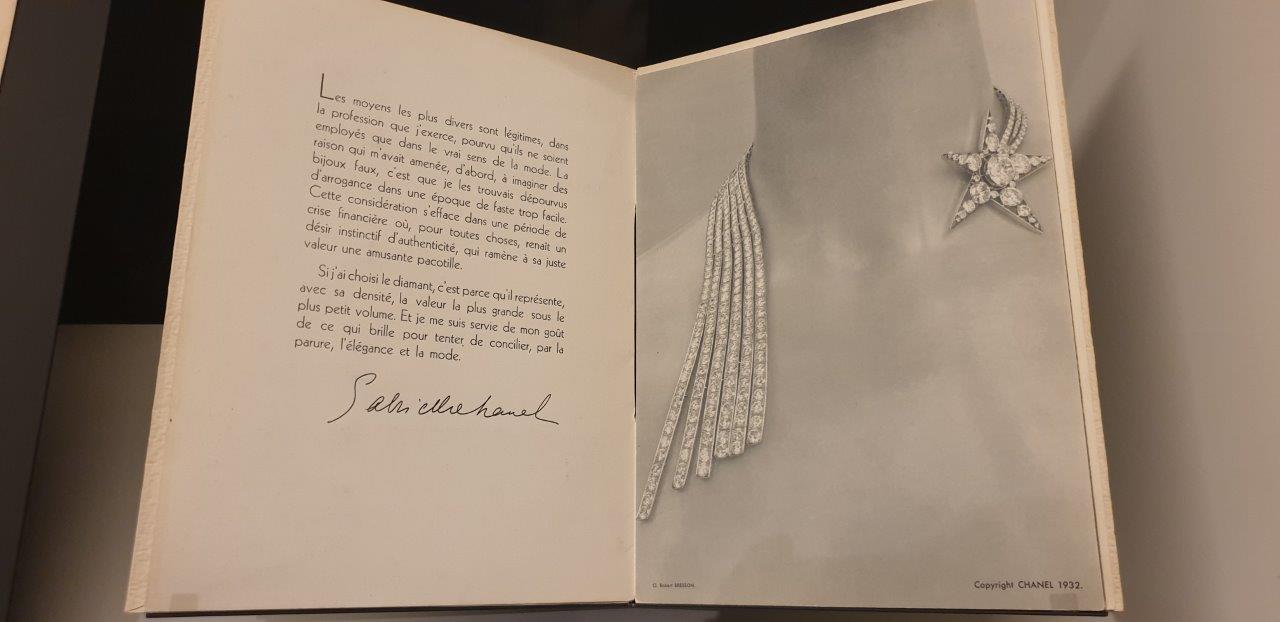 Les moyens les plus divers sont légitimes, dans
la profession que j'exerce, pourvu qu'ils ne soient
employés que dans le vrai sens de la mode. La
raison qui m'avait amenée, d'abord, à imaginer des
bijoux faux, c'est que je les trouvais dépourvus
d'arrogance dans une époque de faste trop facile.
Cette considération s'efface dans une période de
crise financière où, pour toutes choses, renaît un
désir instinctif d'authenticité, qui ramène à sa juste
valeur une amusante pacotille.
Si j'ai choisi le diamant, c'est parce qu'il représente,
avec sa densité, la valeur la plus grande sous le
plus petit volume. Et je me suis servie de mon goût
de ce qui brille pour tenter de concilier, par la
parure, l'élégance et la mode.
Gabrielle Chanel
Robert BRESSON.
Copyright CHANEL 1932.